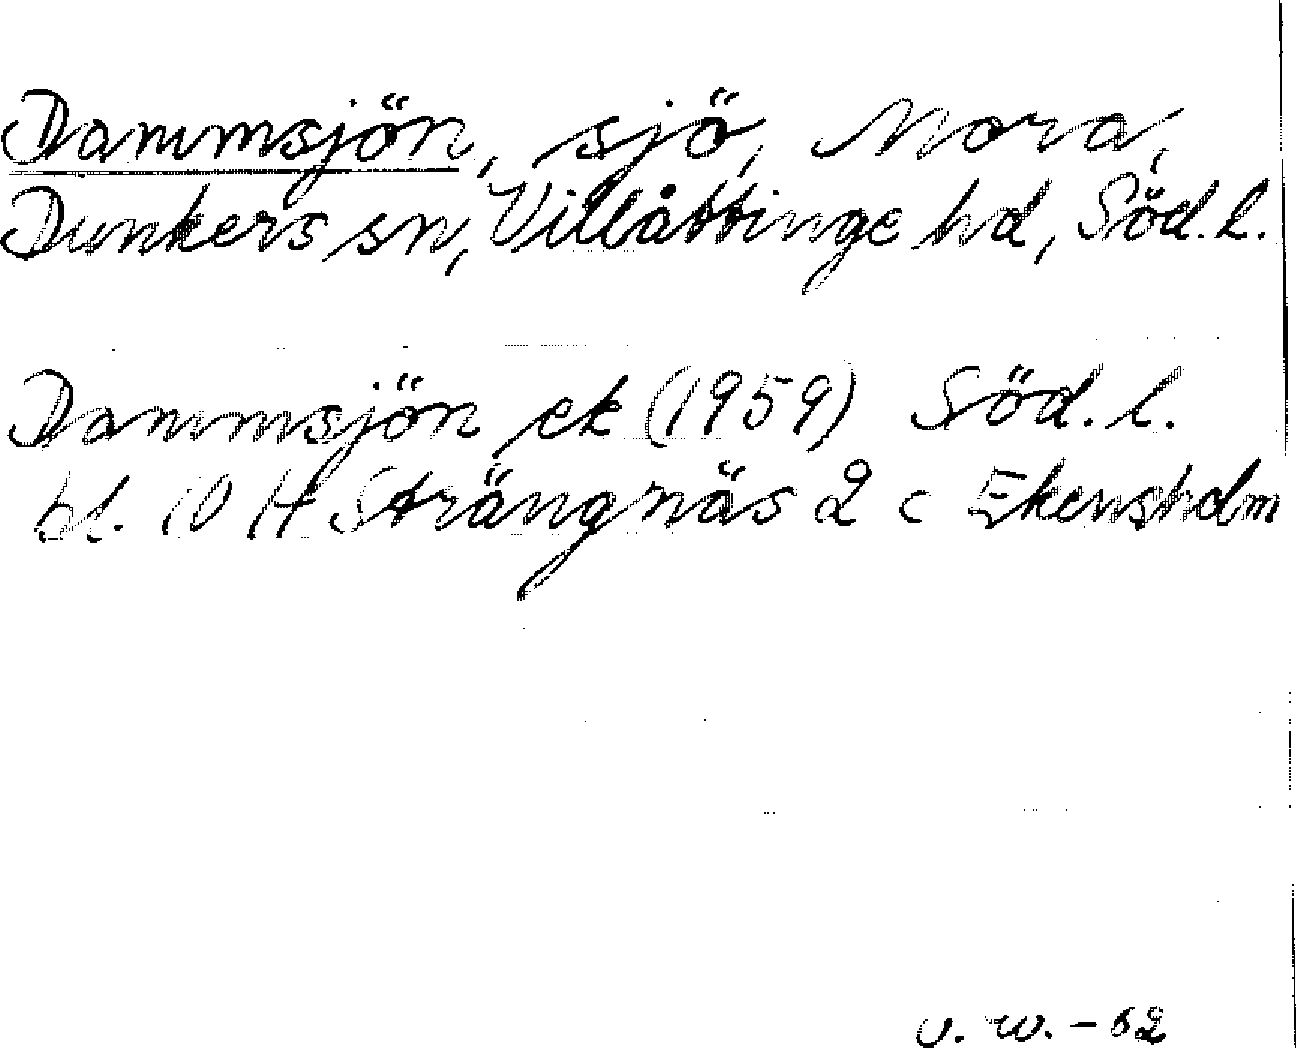 Dammsjön, sjö, Mora,
Dunkers sn, Villåttinge hd, Söd. l.
Dammsjön ek (1959) Söd. l.
bl. 10 H Strängnäs 2 c Ekensholm
U. W. - 62